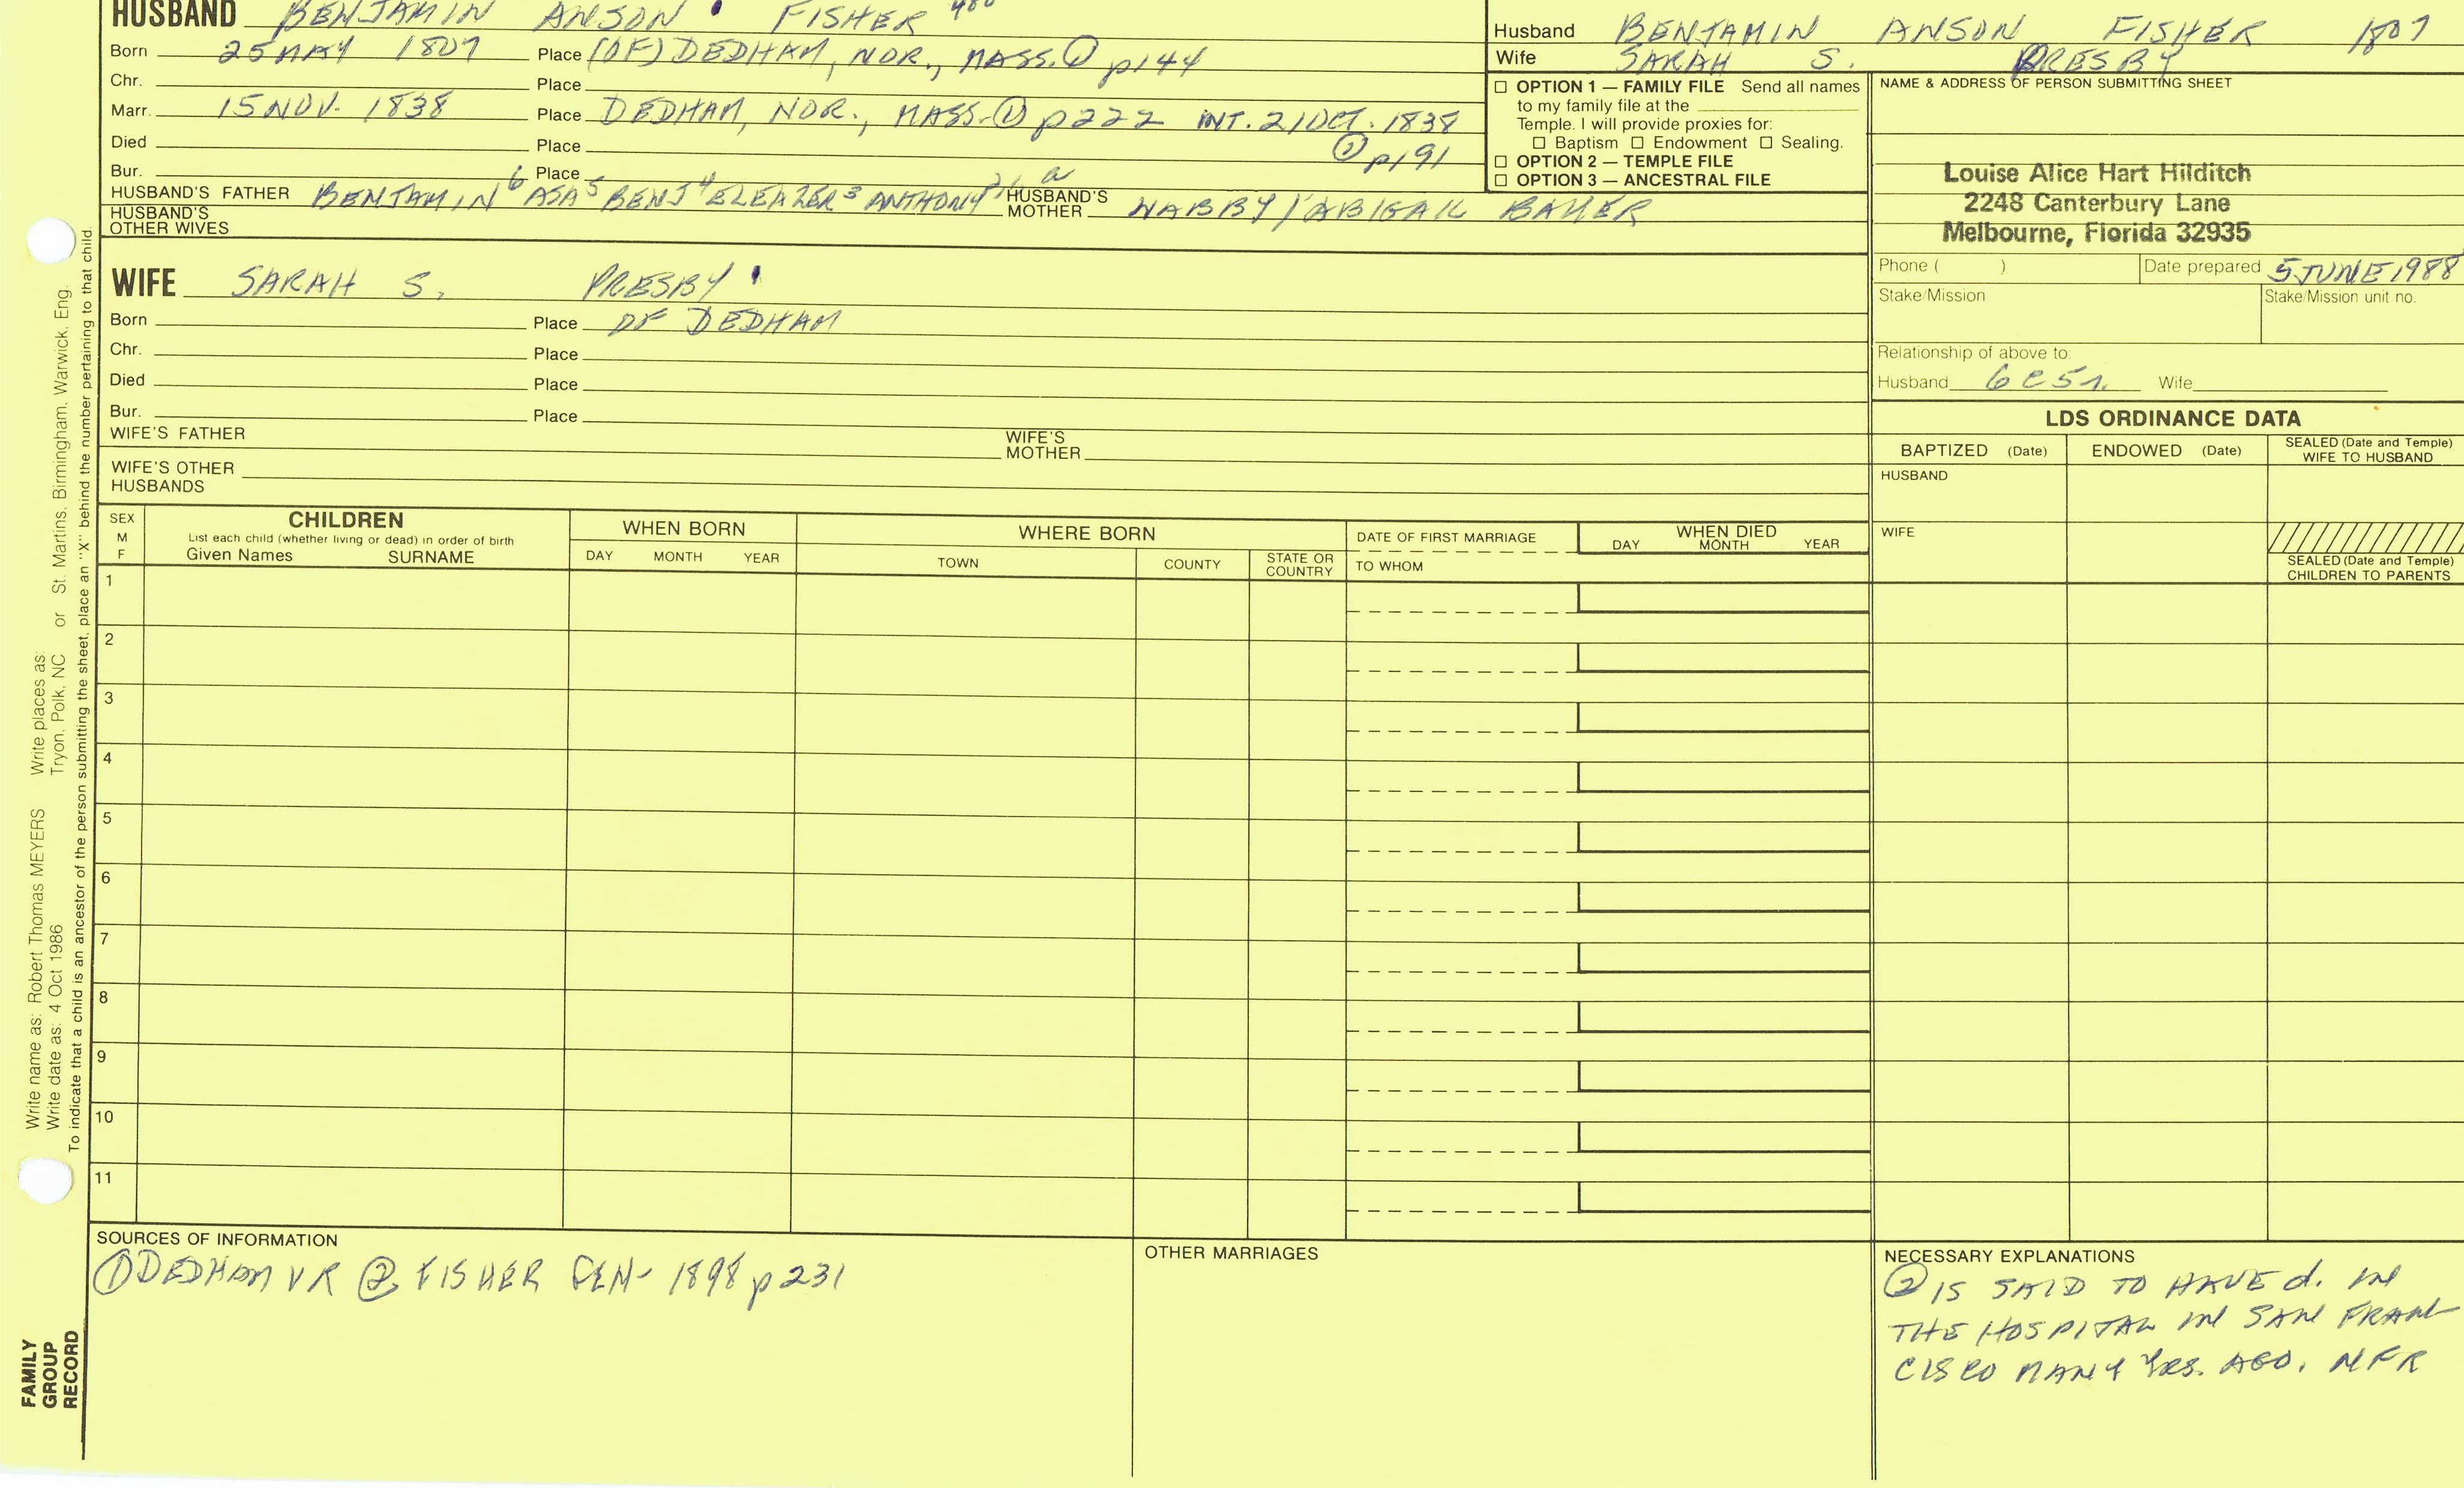 HUSBAND BENJAMIN ANSON FISHER 480
Born 25 MAY 1807 Place (OF) DEDHAM, NOR., MASS. ① p144
Chr. Place
Marr. 15 NOV. 1838 Place DEDHAM, NOR., MASS. ① p222 INT. 21 OCT. 1838
Died Place ② p191
Bur. Place
HUSBAND'S FATHER BENJAMIN 6 ASA 5 BENJ 4 ELEAZER 3 ANTHONY HUSBAND'S MOTHER NABBY/ABIGAIL BAKER
HUSBAND'S OTHER WIVES
WIFE SARAH S. PRESBY
Born Place OF DEDHAM
Chr. Place
Died Place
Bur. Place
WIFE'S FATHER WIFE'S MOTHER
WIFE'S OTHER HUSBANDS
Husband BENJAMIN ANSON FISHER 1807
Wife SARAH S. PRESBY
☐ OPTION 1 — FAMILY FILE Send all names
to my family file at the
Temple. I will provide proxies for:
☐ Baptism ☐ Endowment ☐ Sealing.
☐ OPTION 2 — TEMPLE FILE
☐ OPTION 3 — ANCESTRAL FILE
NAME & ADDRESS OF PERSON SUBMITTING SHEET
Louise Alice Hart Hilditch
2248 Canterbury Lane
Melbourne, Florida 32935
Phone ( ) Date prepared 5 JUNE 1988
Stake/Mission Stake/Mission unit no.
Relationship of above to
Husband 6c5r. Wife
LDS ORDINANCE DATA
BAPTIZED (Date) ENDOWED (Date) SEALED (Date and Temple) WIFE TO HUSBAND
HUSBAND
WIFE
SEALED (Date and Temple)
CHILDREN TO PARENTS
SEX M F
CHILDREN
List each child (whether living or dead) in order of birth
Given Names SURNAME
WHEN BORN
DAY MONTH YEAR
WHERE BORN
TOWN COUNTY STATE OR COUNTRY
DATE OF FIRST MARRIAGE
TO WHOM
WHEN DIED
DAY MONTH YEAR
1
2
3
4
5
6
7
8
9
10
11
SOURCES OF INFORMATION
① DEDHAM VR ② FISHER GEN- 1898 p231
OTHER MARRIAGES
NECESSARY EXPLANATIONS
② IS SAID TO HAVE d. IN
THE HOSPITAL IN SAN FRAN-
CISCO MANY YRS. AGO. NFR
Write name as: Robert Thomas MEYERS Write places as:
Write date as: 4 Oct 1986 Tryon, Polk, NC or St. Martins, Birmingham, Warwick, Eng.
To indicate that a child is an ancestor of the person submitting the sheet, place an "X" behind the number pertaining to that child.
FAMILY
GROUP
RECORD